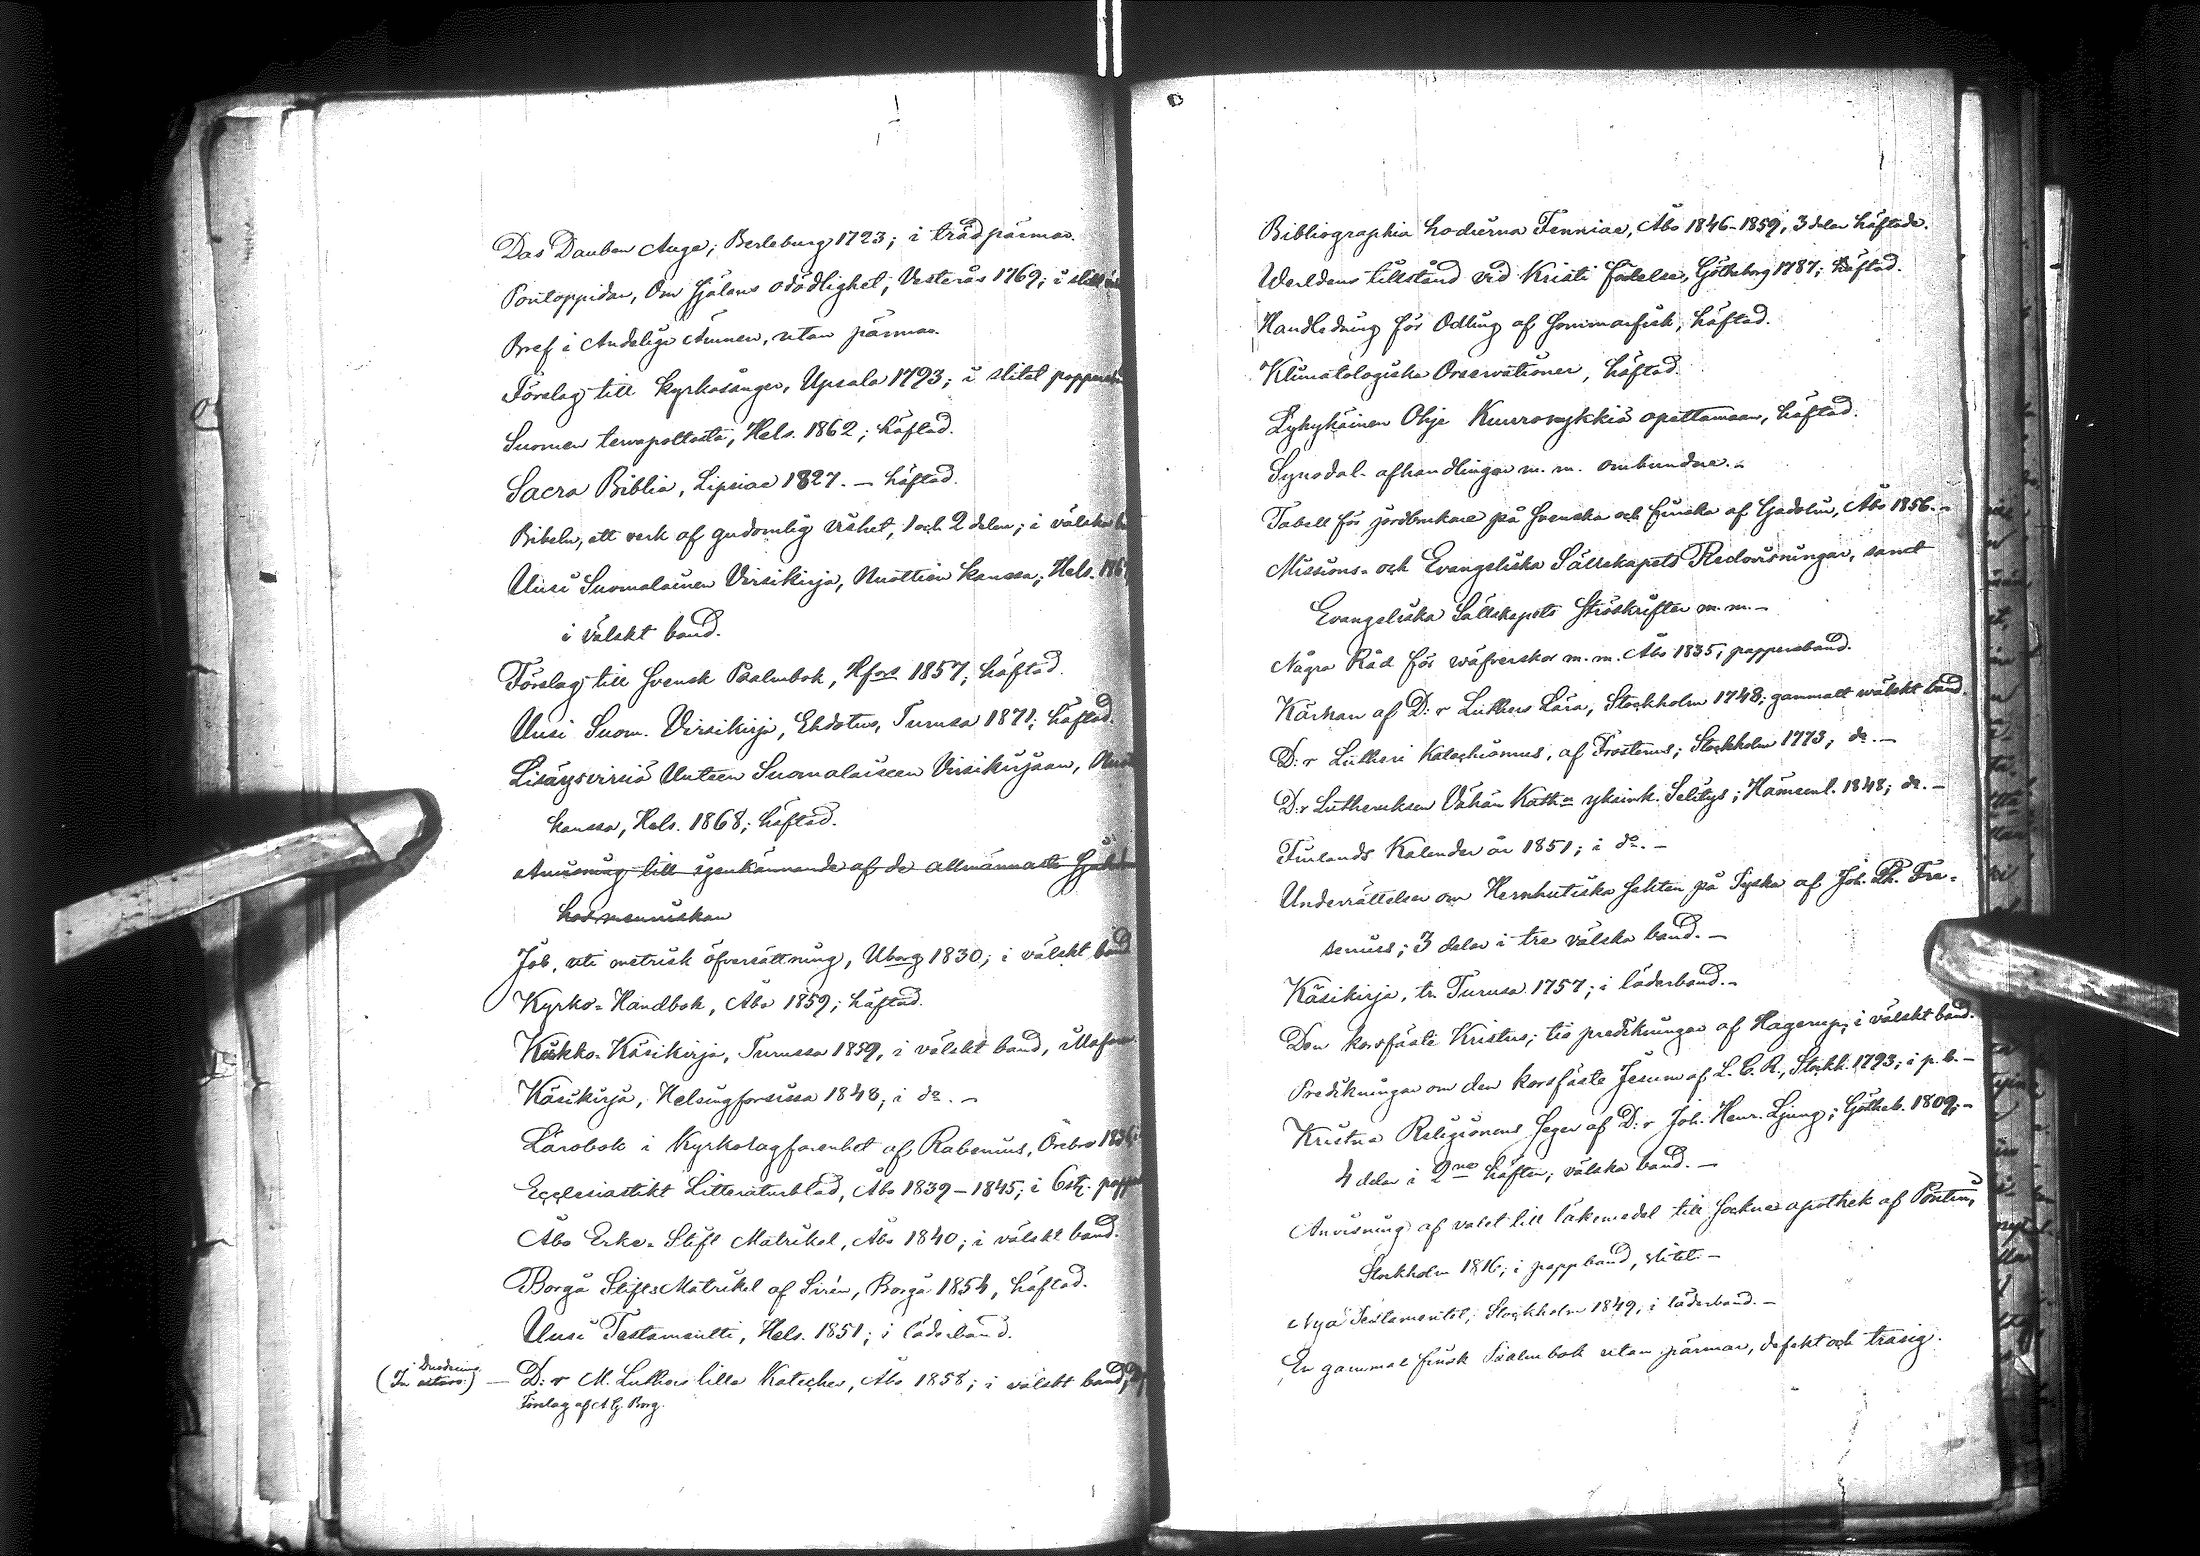 Das Dauben Auge, Berleburg 1723; i trädpärmar.
Pontoppidan, Om Själens odödlighet, Vesterås 1769; i
Bref i Andeliga Ämnen, utan pärmar
Förslag till Kyrkosånger, Upsala 1793; i slitet
Suomen tervapoltosta, Hels. 1862; häftad.
Sacra Biblia, Lipsiae 1827. – häftad.
Bibeln, ett verk af gudomlig vishet, 1 och 2 delen; i välska
Uusi Suomalainen Virsikirja, Nuottien kanssa; Hels.
i välskt band.
Förslag till Svensk Psalmbok, Hfors 1857; häftad.
Uusi Suom. Virsikirja, Ehdotus, Turussa 1871; häftad.
Lisäysvirsiä Uuteen Suomalaiseen Virsikirjaan,
kanssa, Hels. 1868; häftad.
Anvisning till igenkännande af de allmännaste
hos menniskan
Job, uti metrisk öfversättning, Uborg 1830; i välskt band
Kyrko-Handbok, Åbo 1859; häftad.
Kirkko-Käsikirja, Turussa 1859, i välskt band,
Käsikirja, Helsingforsissa 1848; i do. –
Lärobok i Kyrkolagfarenhet af Rabenius, Örebro
Ecclesiastikt Litteraturblad, Åbo 1839–1845; i 6 st.
Åbo Erke-Stift Matrikel, Åbo 1840; i välskt band.
Borgå Stifts Matrikel af Sirén, Borgå 1854, häftad.
Uusi Testamentti, Hels. 1851; i läderband.
D:r M. Luthers lilla Kateches, Åbo 1858; i välskt band,
Förslag af A G. Borg.
Bibliographia hodierna Fenniae, Åbo 1846–1859, 3 delar häftade.
Werldens tillstånd vid Kristi födelse, Götheborg 1787; häftad.
Handledning för Odling af Sommarfisk, häftad.
Klimatologiska Observationer, häftad.
Lyhykäinen Ohje Kuuromykkiä opettamaan, häftad.
Synodal-afhandlingar m. m. ombundna. –
Tabell för jordbrukare på Svenska och finska af Gadolin, Åbo 1856. –
Missions- och Evangeliska Sällskapets Redovisningar, samt
Evangeliska Sällskapets Ströskrifter m. m. –
Några Råd för wäfverskor m. m. Åbo 1835; pappersband.
Kärnan af D:r Luthers Lära, Stockholm 1748; gammalt wälskt band.
D:r Lutheri Katechismus, af Frosterus; Stockholm 1773; do. –
D:r Lutheruksen Vähän Kath:n yksink. Selitys; Hämeenl. 1848; do. –
Finlands Kalender år 1851; i do. –
Underrättelser om Hernhutiska sekten på Tyska af Joh. Ph. Fre-
senius; 3 delar i tre välska band. –
Käsikirja, tr. Turusa 1757; i läderband. –
Den korsfäste Kristus; tio predikningar af Hagerup; i välskt band.
Predikningar om den korsfäste Jesum af L. C. R., Stockh. 1793; i p. b. –
Kristna Religionens Seger af D:r Joh. Henr. Ljung; Götheb. 1809; –
4 delar i 2ne häften; välska band. –
Anvisning af valet till läkemedel till Socknes apothek af Pontin,
Stockholm 1816; i pappband, slitet. –
Nya Testamentet, Stockholm 1849, i läderband. –
En gammal finsk Psalmbok utan pärmar, defekt och trasig.